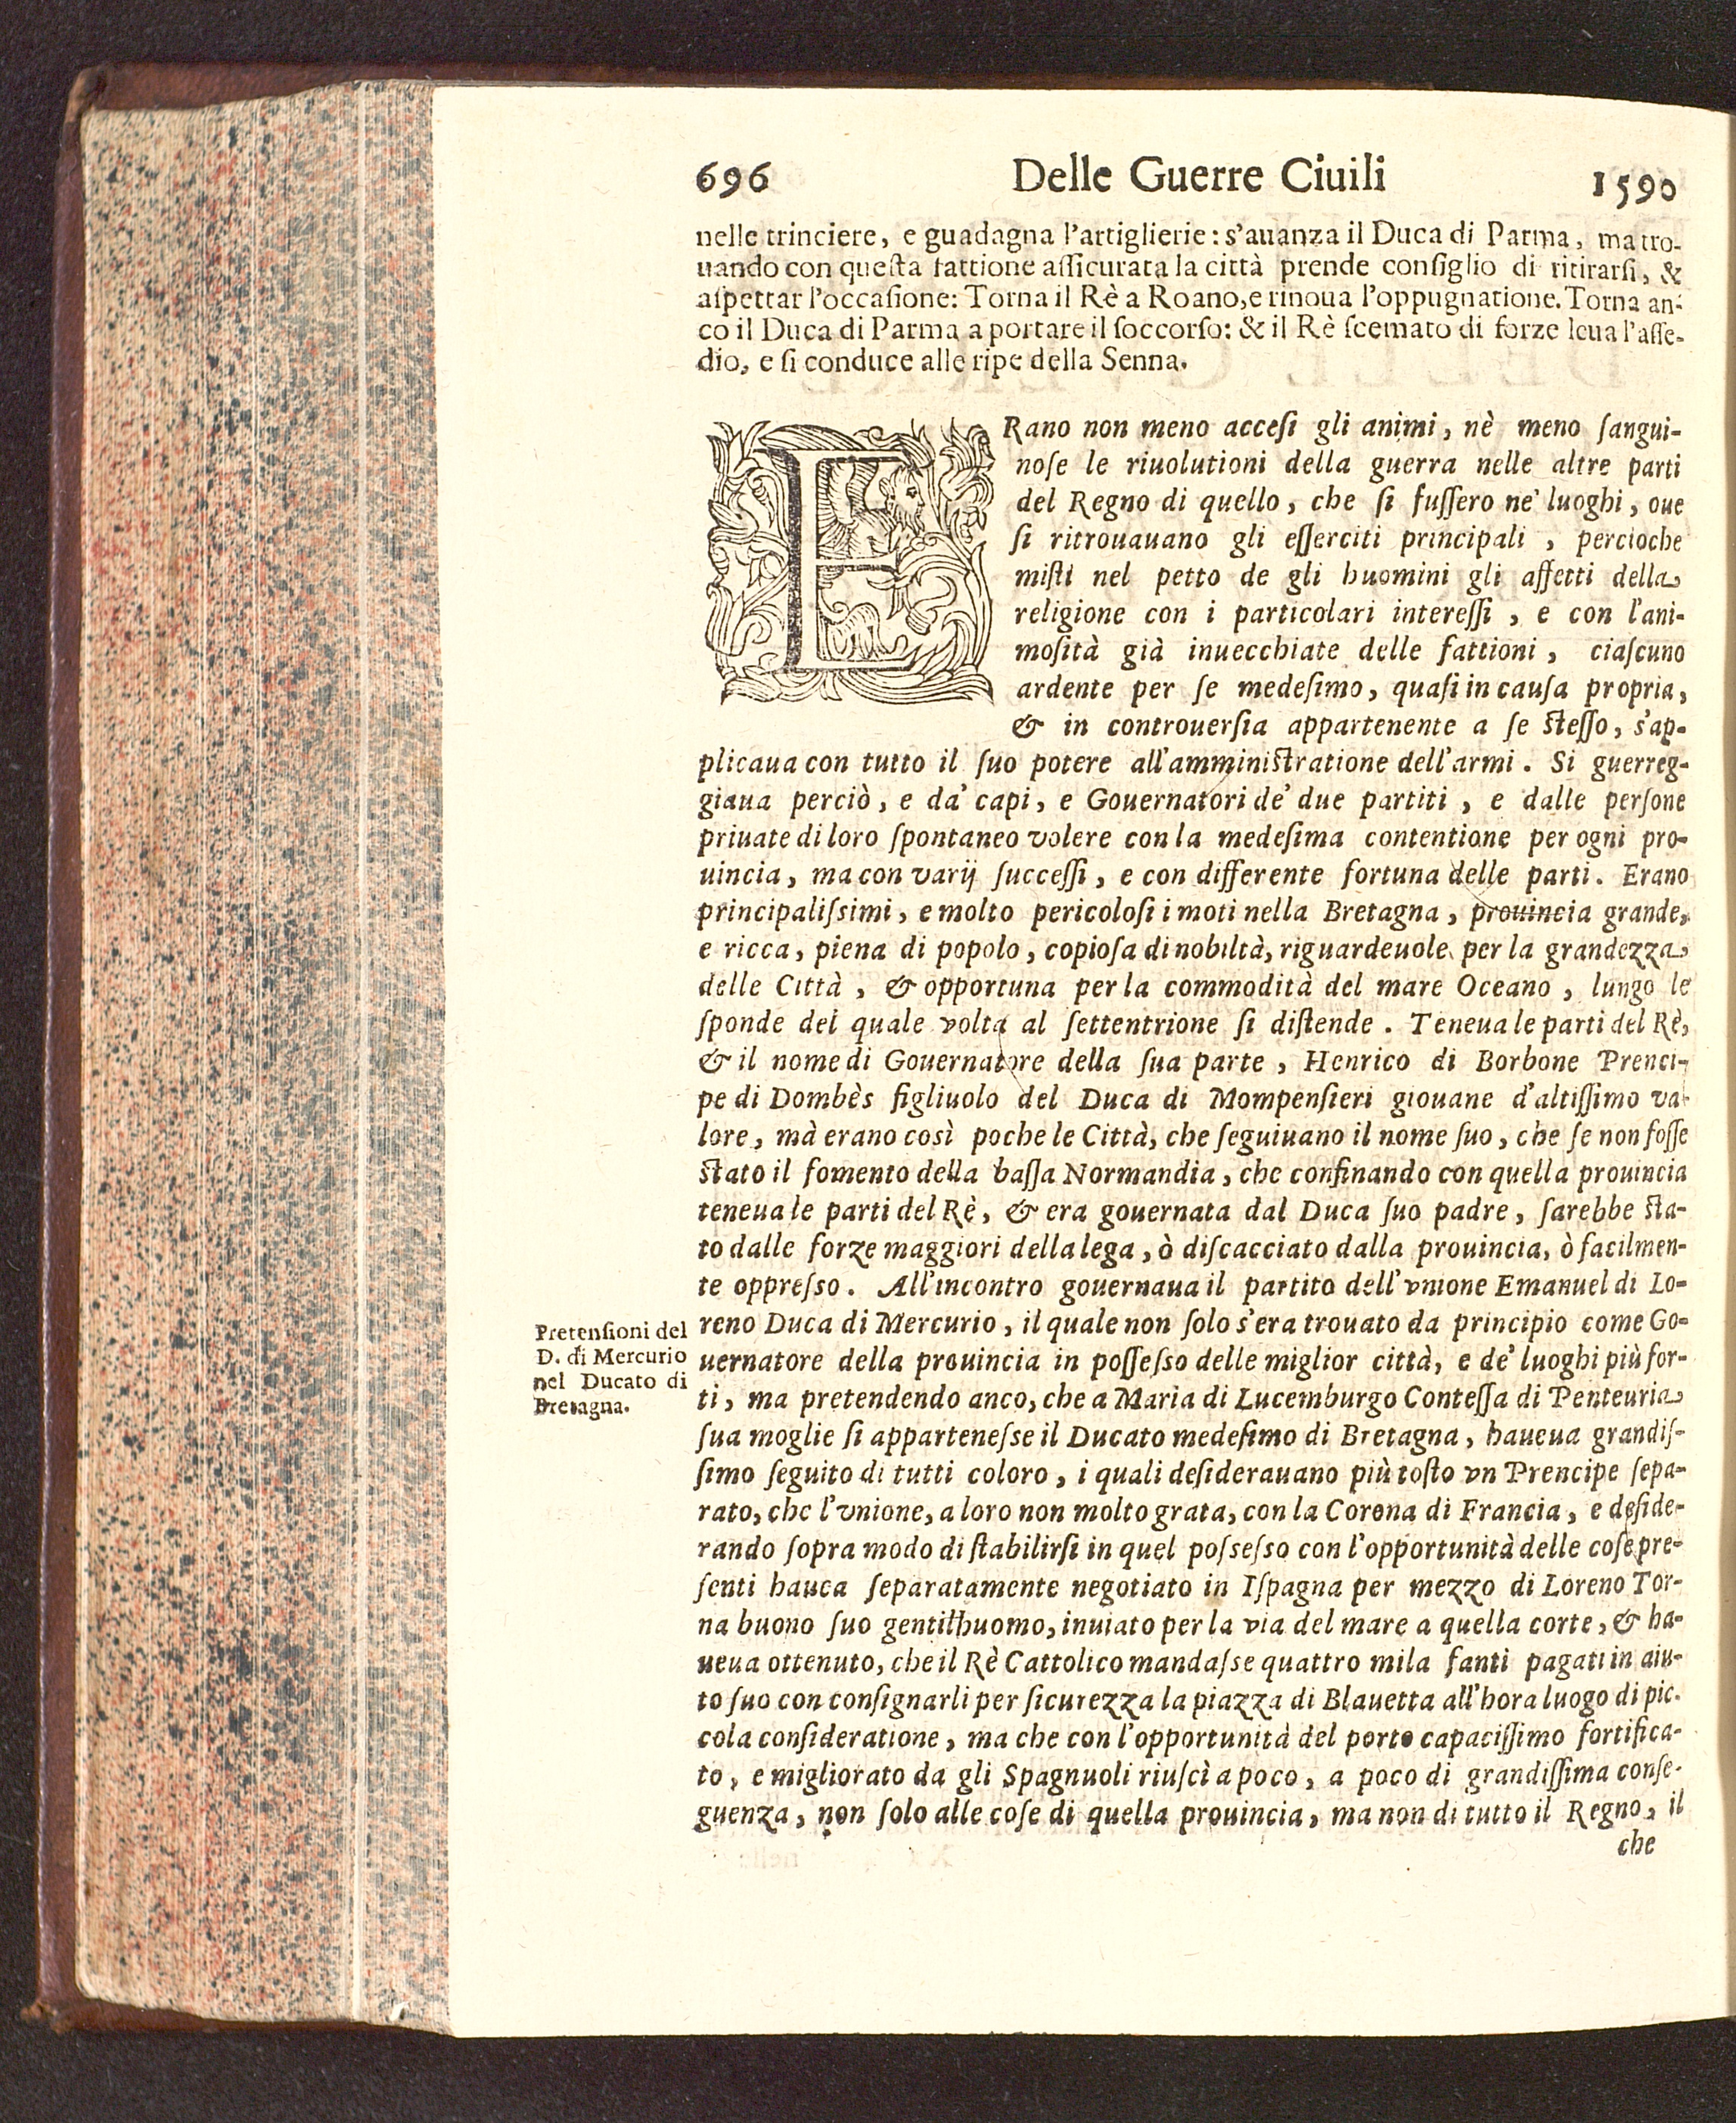 696 Delle Guerre Ciuili 1590
nelle trinciere, e guadagna l'artiglierie: s'auanza il Duca di Parma, ma tro-
uando con queſta fattione aſſicurata la città prende conſiglio di ritirarſi, &
aſpettar l'occaſione: Torna il Rè a Roano, e rinoua l'oppugnatione. Torna an-
co il Duca di Parma a portare il ſoccorſo: & il Rè ſcemato di forze leua l'aſſe-
dio, e ſi conduce alle ripe della Senna.
ERano non meno acceſi gli animi, nè meno ſangui-
noſe le riuolutioni della guerra nelle altre parti
del Regno di quello, che ſi fuſſero ne' luoghi, oue
ſi ritrouauano gli eſſerciti principali, percioche
miſti nel petto de gli huomini gli affetti della
religione con i particolari intereſſi, e con l'ani-
moſità già inuecchiate delle fattioni, ciaſcuno
ardente per ſe medeſimo, quaſi in cauſa propria,
& in controuerſia appartenente a ſe ſteſſo, s'ap-
plicaua con tutto il ſuo potere all'amminiſtratione dell'armi. Si guerreg-
giaua perciò, e da' capi, e Gouernatori de' due partiti, e dalle perſone
priuate di loro ſpontaneo volere con la medeſima contentione per ogni pro-
uincia, ma con varij ſucceſſi, e con differente fortuna delle parti. Erano
principaliſsimi, e molto pericoloſi i moti nella Bretagna, prouincia grande,
e ricca, piena di popolo, copioſa di nobiltà, riguardeuole per la grandezza
delle Città, & opportuna per la commodità del mare Oceano, lungo le
ſponde del quale volta al ſettentrione ſi diſtende. Teneua le parti del Rè,
& il nome di Gouernatore della ſua parte, Henrico di Borbone Prenci-
pe di Dombès figliuolo del Duca di Mompenſieri giouane d'altiſſimo va-
lore, mà erano così poche le Città, che ſeguiuano il nome ſuo, che ſe non foſſe
ſtato il fomento della baſſa Normandia, che confinando con quella prouincia
teneua le parti del Rè, & era gouernata dal Duca ſuo padre, ſarebbe ſta-
to dalle forze maggiori della lega, ò diſcacciato dalla prouincia, ò facilmen-
te oppreſso. All'incontro gouernaua il partito dell'vnione Emanuel di Lo-
reno Duca di Mercurio, il quale non ſolo s'era trouato da principio come Go-
uernatore della prouincia in poſſeſso delle miglior città, e de' luoghi più for-
ti, ma pretendendo anco, che a Maria di Lucemburgo Conteſſa di Penteuria
ſua moglie ſi apparteneſse il Ducato medeſimo di Bretagna, haueua grandiſ-
ſimo ſeguito di tutti coloro, i quali deſiderauano più toſto vn Prencipe ſepa-
rato, che l'vnione, a loro non molto grata, con la Corona di Francia, e deſide-
rando ſopra modo di ſtabilirſi in quel poſseſso con l'opportunità delle coſe pre-
ſenti hauea ſeparatamente negotiato in Iſpagna per mezzo di Loreno Tor-
na buono ſuo gentilhuomo, inuiato per la via del mare a quella corte, & ha-
ueua ottenuto, che il Rè Cattolico mandaſse quattro mila fanti pagati in aiu-
to ſuo con conſignarli per ſicurezza la piazza di Blauetta all'hora luogo di pic-
cola conſideratione, ma che con l'opportunità del porto capaciſſimo fortifica-
to, e migliorato da gli Spagnuoli riuſcì a poco, a poco di grandiſſima conſe-
guenza, non ſolo alle coſe di quella prouincia, ma non di tutto il Regno, il
che
Pretenſioni del
D. di Mercurio
nel Ducato di
Bretagna.